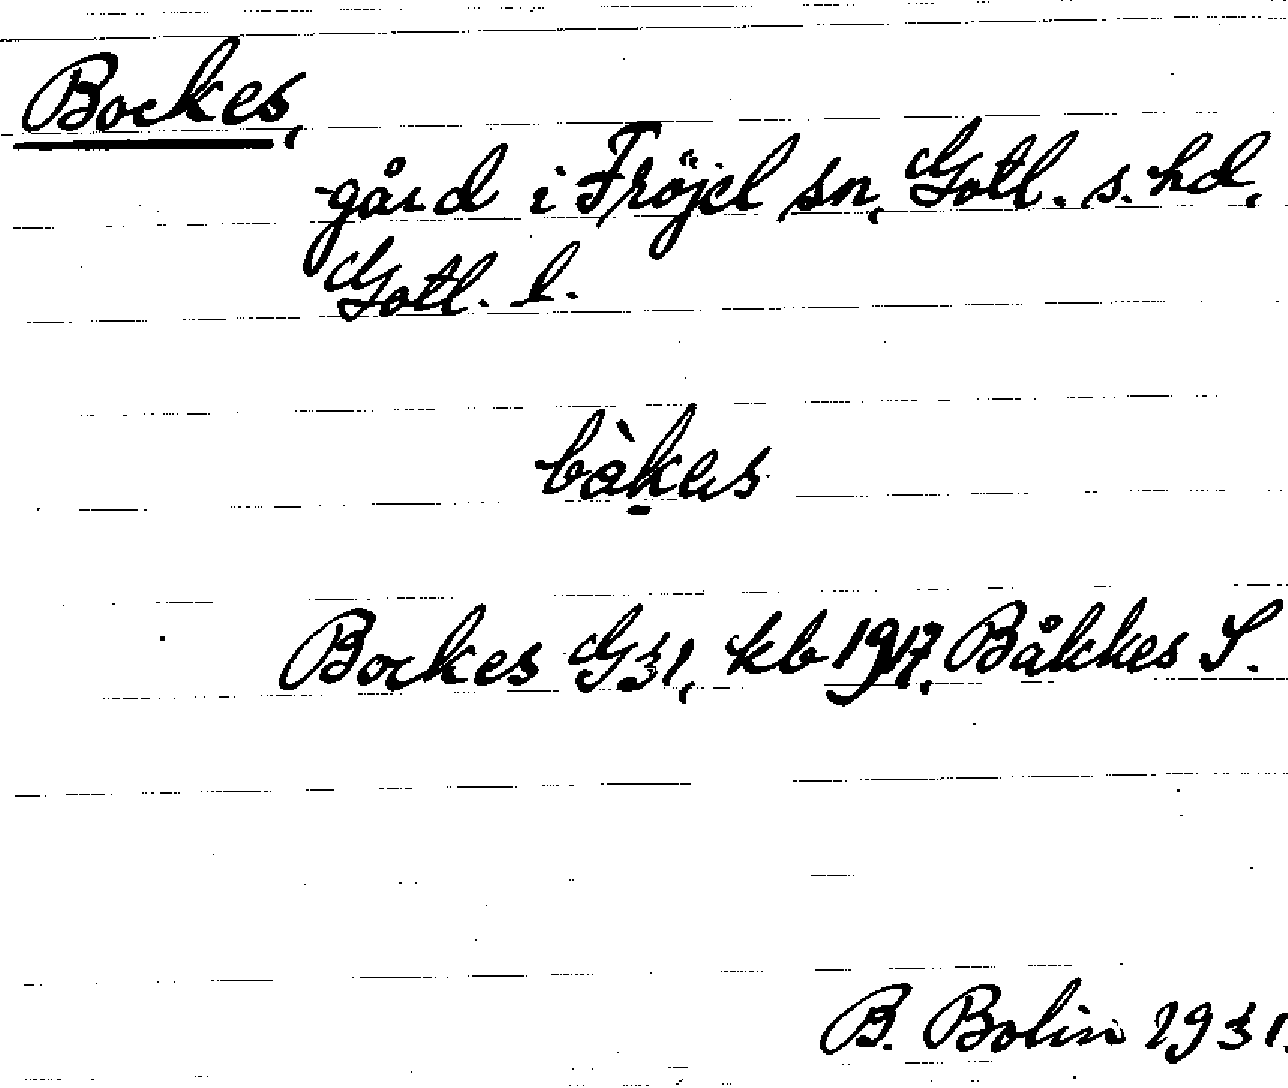 Bockes,
gård i Fröjel sn, Gotl. s. hd,
Gotl. l.
bàkes
Bockes G31, kb 1917, Båkkes S.
B. Bolin 1931.